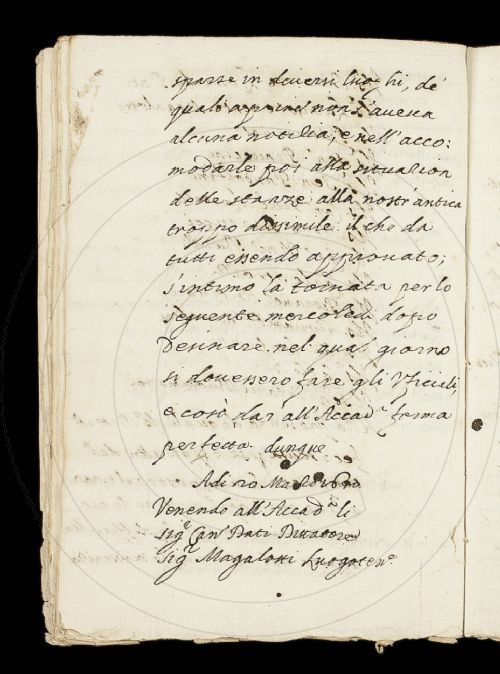 sparse in diversi luoghi, de
quali appena non s'aveva
alcuna notitia, e nell'acco:
modarle poi alla situazion
delle stanze alla nostr'antica
troppo dissimile il che da
tutti essendo approuato;
s'intimò la tornata per lo
seguente mercoledi dopo
desinare, nel qual giorno
si douessero fare gli Vficiali,
e così dar all'Accad.ª forma
perfetta. dunque
Adi 20 Marzo
Venendo all'Accad.ª li
Sig.r Can.co Dati Dittatore
Sig.r Magalotti Luogoten.e